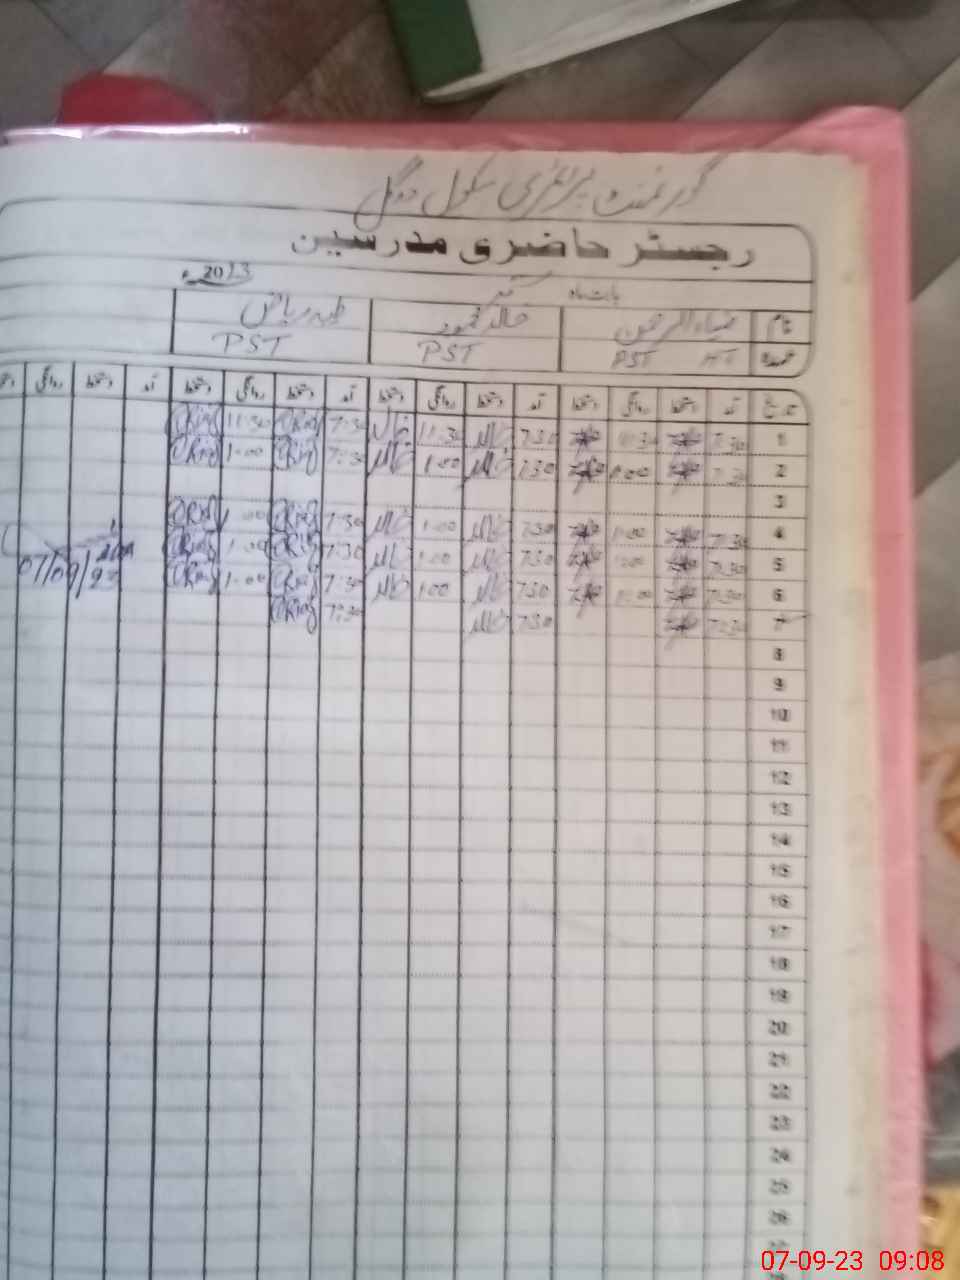 گورنمنٹ پرائمری سکول دوگل
رجسٹر حاضری مدرسین
بابت ماہ ستمبر 2023ء
نام ضیاء الرحمن خالد محمود طیبہ ریاض
عہدہ PST HT PST PST
تاریخ آمد دستخط روانگی دستخط آمد دستخط روانگی دستخط آمد دستخط روانگی دستخط آمد دستخط روانگی
1 7:30 11:30 7:30 خالد 11:30 خالد 7:30 11:30
2 7:30 1:00 7:30 خالد 1:00 خالد 7:30 1:00
3
4 7:30 1:00 7:30 خالد 1:00 خالد 7:30 1:00
5 7:30 1:00 7:30 خالد 1:00 خالد 7:30 1:00
6 7:30 1:00 7:30 خالد 1:00 خالد 7:30 1:00
7 7:30 7:30 خالد 7:30
07/09/23
8
9
10
11
12
13
14
15
16
17
18
19
20
21
22
23
24
25
26
07-09-23 09:08